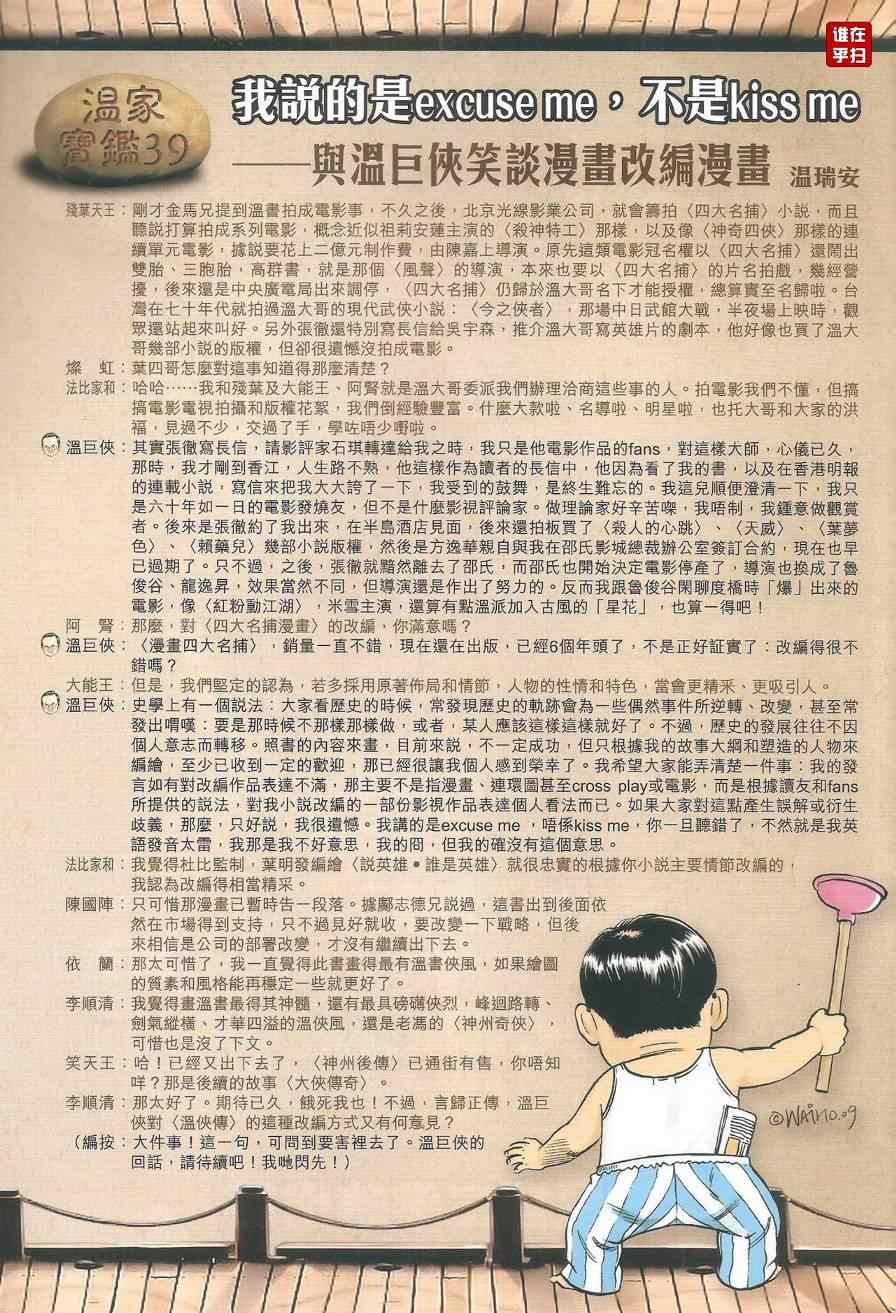 谁在乎扫
温家寶鑑39
我説的是excuse me，不是kiss me
——與溫巨俠笑談漫畫改編漫畫 温瑞安
殘葉天王：剛才金馬兄提到溫書拍成電影事，不久之後，北京光線影業公司，就會籌拍〈四大名捕〉小説，而且
聽説打算拍成系列電影，概念近似祖莉安蓮主演的〈殺神特工〉那樣，以及像〈神奇四俠〉那樣的連
續單元電影，據説要花上二億元制作費，由陳嘉上導演。原先這類電影冠名權以〈四大名捕〉還鬧出
雙胎、三胞胎，高群書，就是那個〈風聲〉的導演，本來也要以〈四大名捕〉的片名拍戲，幾經營
擾，後來還是中央廣電局出來調停，〈四大名捕〉仍歸於溫大哥名下才能授權，總算實至名歸啦。台
灣在七十年代就拍過溫大哥的現代武俠小説：〈今之俠者〉，那場中日武館大戰，半夜場上映時，觀
眾還站起來叫好。另外張徹還特別寫長信給吳宇森，推介溫大哥寫英雄片的劇本，他好像也買了溫大
哥幾部小説的版權，但卻很遺憾沒拍成電影。
燦　虹：葉四哥怎麼對這事知道得那麼清楚？
法比家和：哈哈⋯⋯我和殘葉及大能王、阿腎就是溫大哥委派我們辦理洽商這些事的人。拍電影我們不懂，但搞
搞電影電視拍攝和版權花絮，我們倒經驗豐富。什麼大款啦、名導啦、明星啦，也托大哥和大家的洪
福，見過不少，交過了手，學咗唔少嘢啦。
溫巨俠：其實張徹寫長信，請影評家石琪轉達給我之時，我只是他電影作品的fans，對這樣大師，心儀已久，
那時，我才剛到香江，人生路不熟，他這樣作為讀者的長信中，他因為看了我的書，以及在香港明報
的連載小説，寫信來把我大大誇了一下，我受到的鼓舞，是終生難忘的。我這兒順便澄清一下，我只
是六十年如一日的電影發燒友，但不是什麼影視評論家。做理論家好辛苦㗎，我唔制，我鍾意做觀賞
者。後來是張徹約了我出來，在半島酒店見面，後來還拍板買了〈殺人的心跳〉、〈天威〉、〈葉夢
色〉、〈賴藥兒〉幾部小説版權，然後是方逸華親自與我在邵氏影城總裁辦公室簽訂合約，現在也早
已過期了。只不過，之後，張徹就黯然離去了邵氏，而邵氏也開始決定電影停產了，導演也換成了魯
俊谷、龍逸昇，效果當然不同，但導演還是作出了努力的。反而我跟魯俊谷閑聊度橋時「爆」出來的
電影，像〈紅粉動江湖〉，米雪主演，還算有點溫派加入古風的「星花」，也算一得吧！
阿　腎：那麼，對〈四大名捕漫畫〉的改編，你滿意嗎？
溫巨俠：〈漫畫四大名捕〉，銷量一直不錯，現在還在出版，已經6個年頭了，不是正好証實了：改編得很不
錯嗎？
大能王：但是，我們堅定的認為，若多採用原著佈局和情節，人物的性情和特色，當會更精釆、更吸引人。
溫巨俠：史學上有一個説法：大家看歷史的時候，常發現歷史的軌跡會為一些偶然事件所逆轉、改變，甚至常
發出喟嘆：要是那時候不那樣那樣做，或者，某人應該這樣這樣就好了。不過，歷史的發展往往不因
個人意志而轉移。照書的內容來畫，目前來説，不一定成功，但只根據我的故事大綱和塑造的人物來
編繪，至少已收到一定的歡迎，那已經很讓我個人感到榮幸了。我希望大家能弄清楚一件事：我的發
言如有對改編作品表達不滿，那主要不是指漫畫、連環圖甚至cross play或電影，而是根據讀友和fans
所提供的説法，對我小説改編的一部份影視作品表達個人看法而已。如果大家對這點產生誤解或衍生
歧義，那麼，只好説，我很遺憾。我講的是excuse me ，唔係kiss me，你一旦聽錯了，不然就是我英
語發音太雷，我那是我不好意思，我的囧，但我的確沒有這個意思。
法比家和：我覺得杜比監制，葉明發編繪〈説英雄●誰是英雄〉就很忠實的根據你小説主要情節改編的，
我認為改編得相當精采。
陳國陣：只可惜那漫畫已暫時告一段落。據鄺志德兄説過，這書出到後面依
然在市場得到支持，只不過見好就收，要改變一下戰略，但後
來相信是公司的部署改變，才沒有繼續出下去。
依　蘭：那太可惜了，我一直覺得此書畫得最有溫書俠風，如果繪圖
的質素和風格能再穩定一些就更好了。
李順清：我覺得畫溫書最得其神髓，還有最具磅礡俠烈，峰迴路轉、
劍氣縱橫、才華四溢的溫俠風，還是老馮的〈神州奇俠〉，
可惜也是沒了下文。
笑天王：哈！已經又出下去了，〈神州後傳〉已通街有售，你唔知
咩？那是後續的故事〈大俠傳奇〉。
李順清：那太好了。期待已久，餓死我也！不過，言歸正傳，溫巨
俠對〈溫俠傳〉的這種改編方式又有何意見？
（編按：大件事！這一句，可問到要害裡去了。溫巨俠的
回話，請待續吧！我哋閃先！）
©WAIMO.09